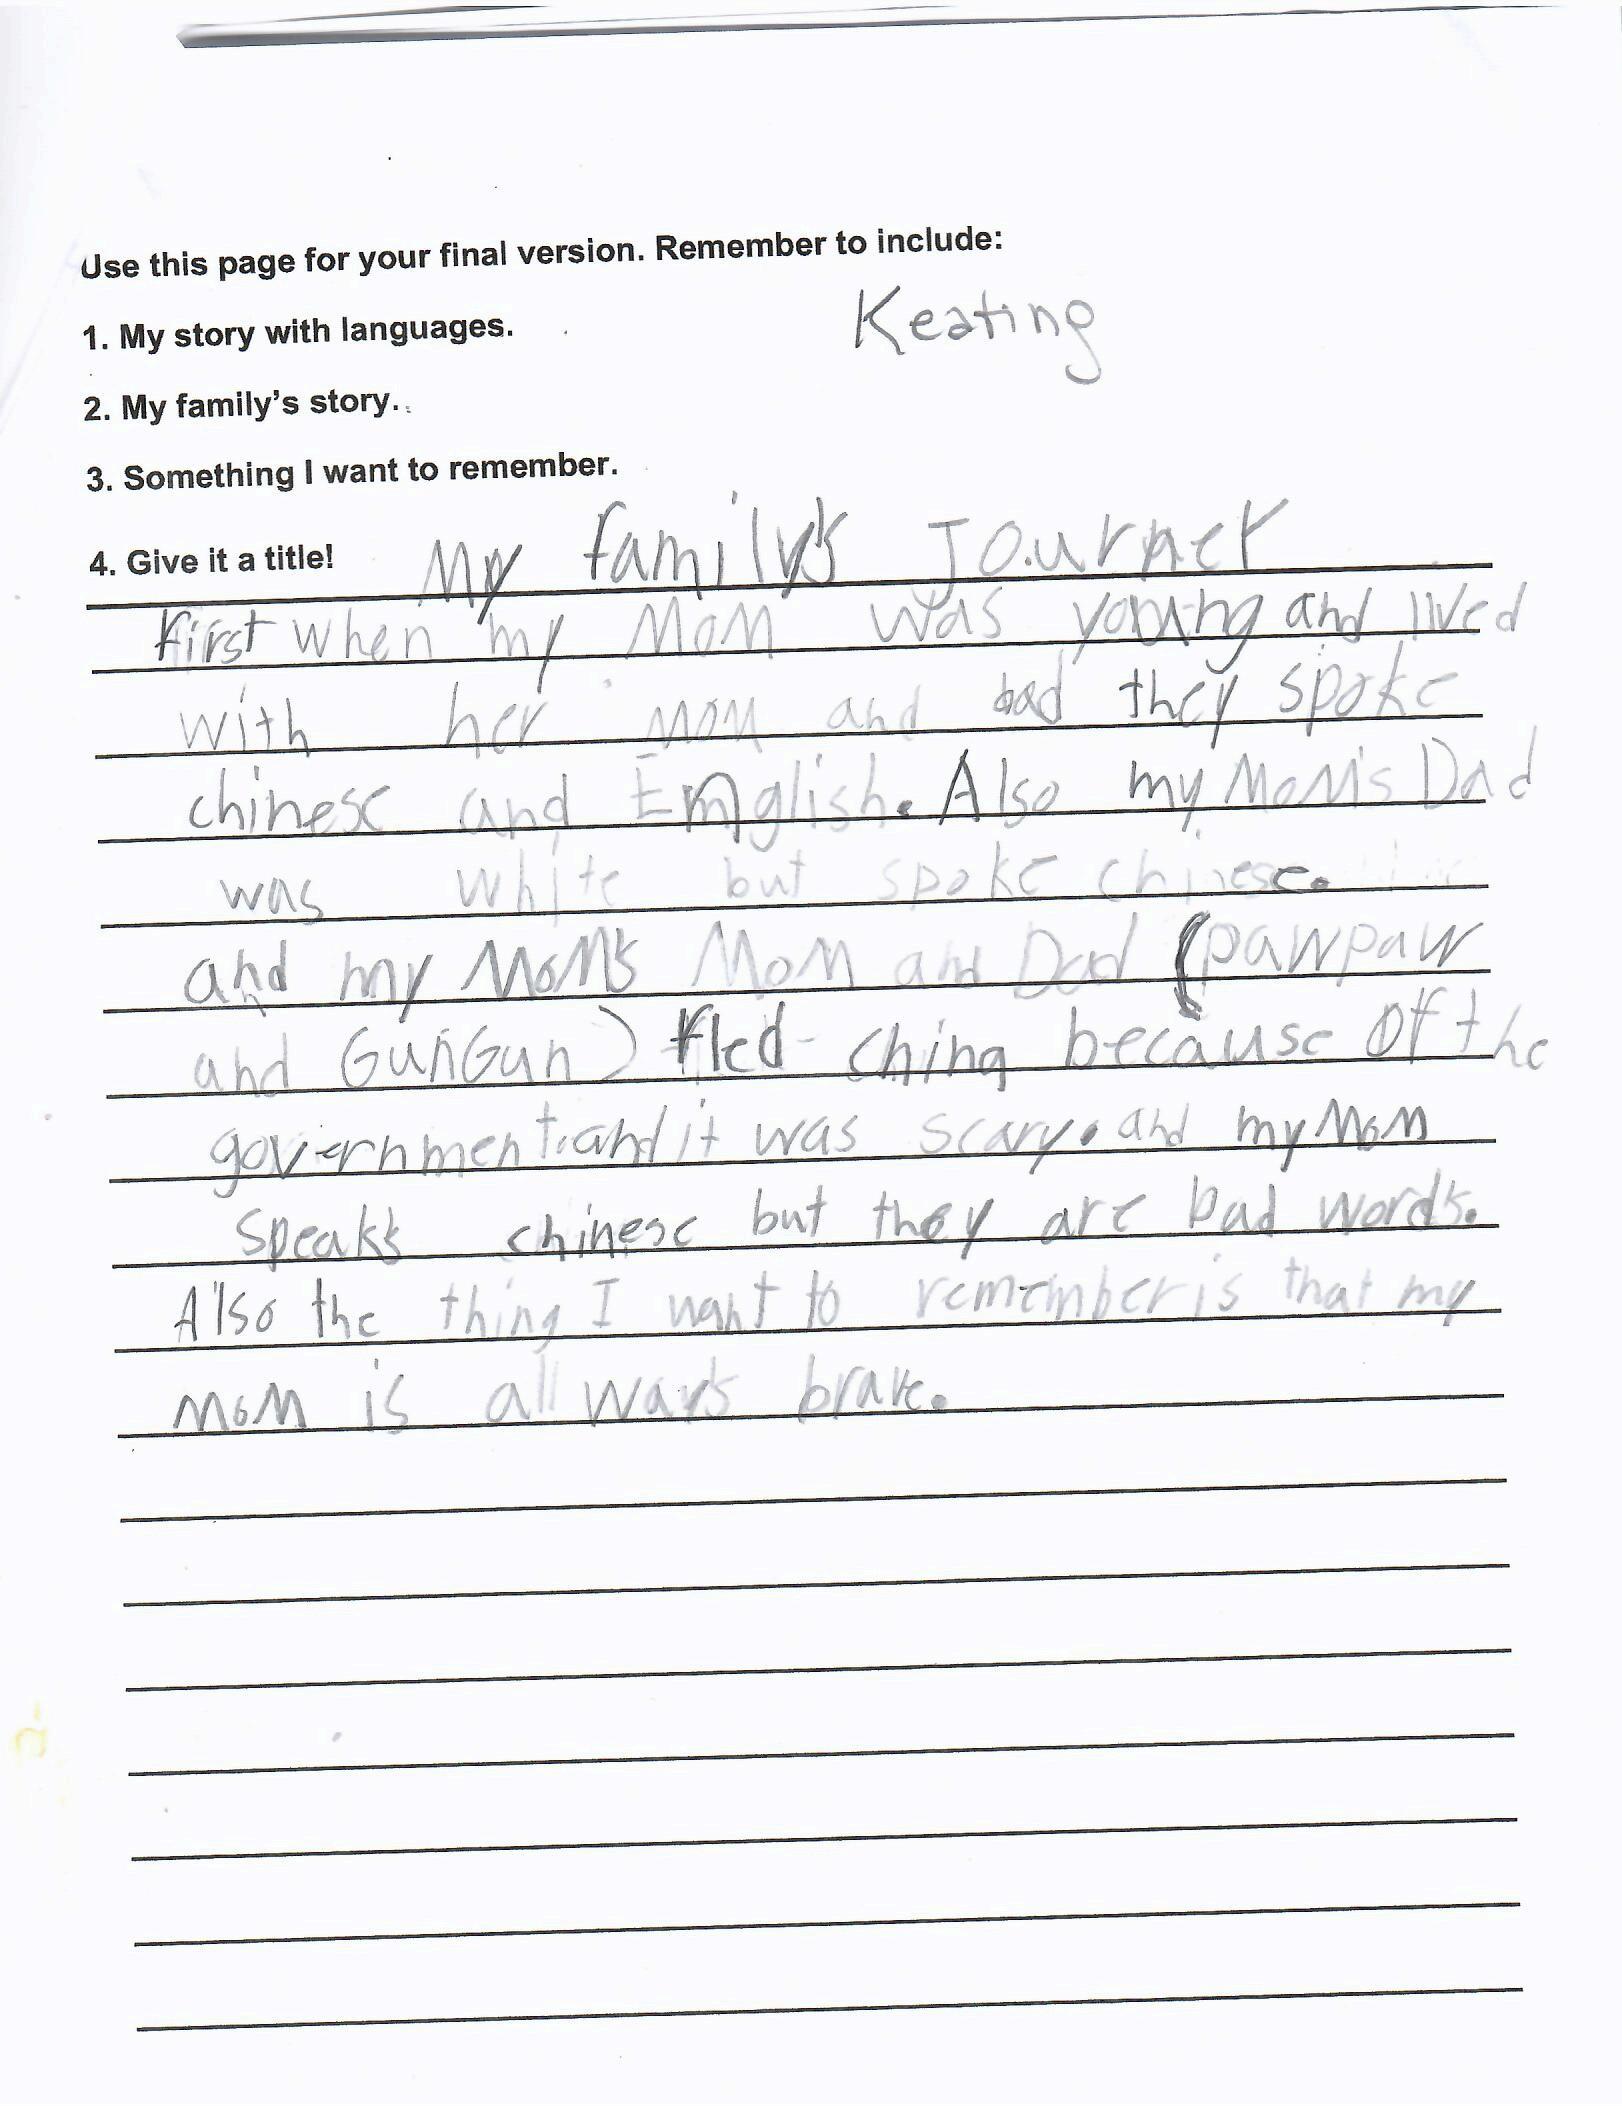 Use this page for your final version. Remember to include:
1. My story with languages.
Keating
2. My family's story.
3. Something I want to remember.
4. Give it a title! My family's Journey
First when my MoM was young and lived
with her MoM and dad they spoke
chinese and Emglish. Also my MoM's Dad
was white but spoke chinese.
and my MoM's MoM and Dad (pawpaw
and GunGun) fled ching because of the
government. and it was scary. and my MoM
speaks chinese but they are bad words.
Also the thing I want to remember is that my
MoM is all ways brave.